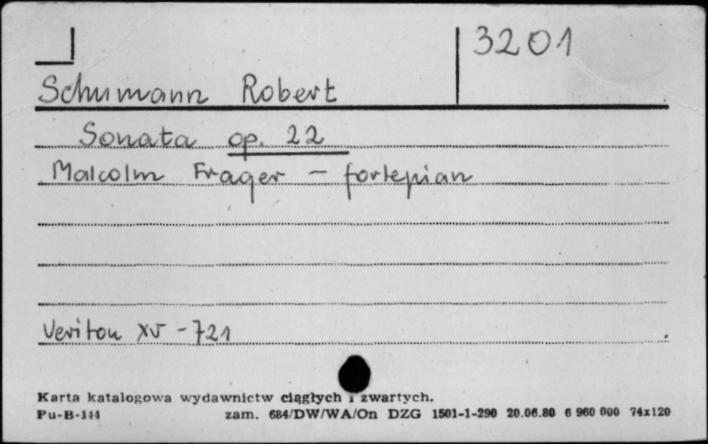 3201
Schumann Robert
Sonata op. 22
Malcolm Frager - fortepian
Veriton XV - 721
Karta katalogowa wydawnictw ciągłych i zwartych.
Pu-B-144 zam. 684/DW/WA/On DZG 1501-1-290 20.06.80 6 960 000 74x120